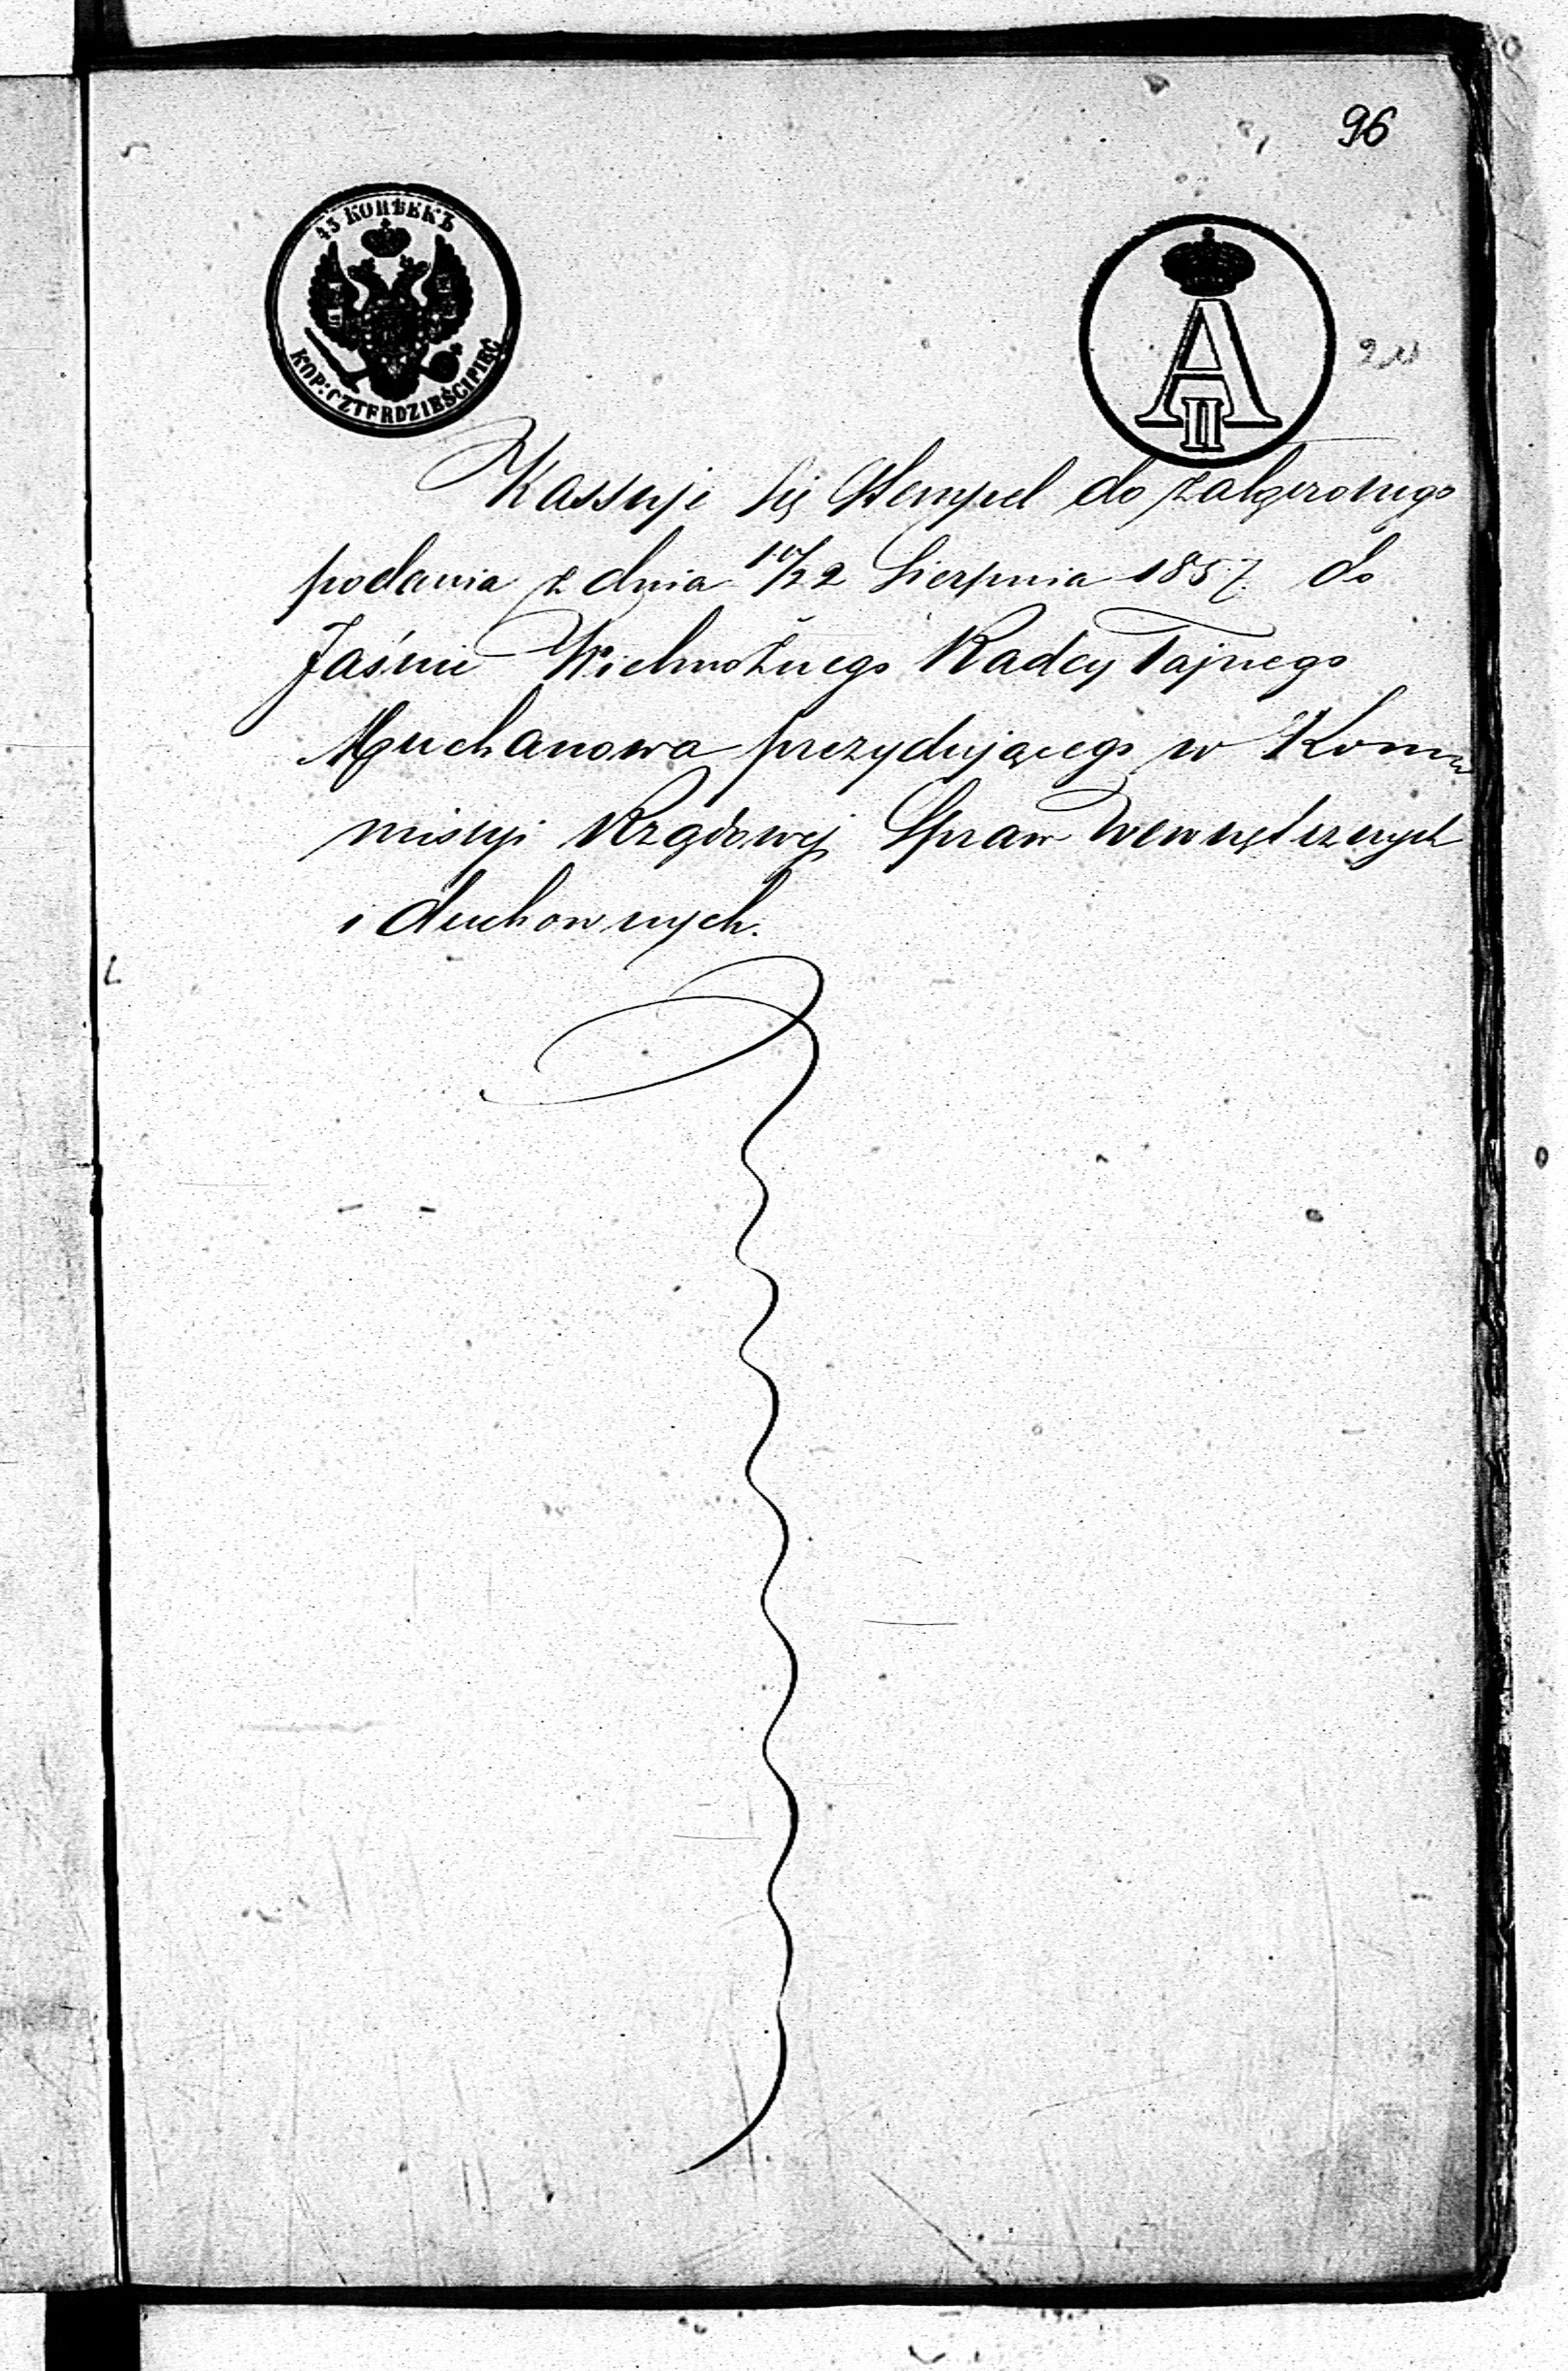 96
45 КОПѢЕКЪ
KOP: CZTERDZIEŚCI PIĘĆ
A
II
Kassuje się Stempel do załączonego
podania z dnia 10/22 Sierpnia 1857. do
Jaśnie Wielmożnego Radcy Tajnego
Muchanowa prezydującego w Kom=
missyi Rządowej Spraw Wewnętrznych
i duchownych.